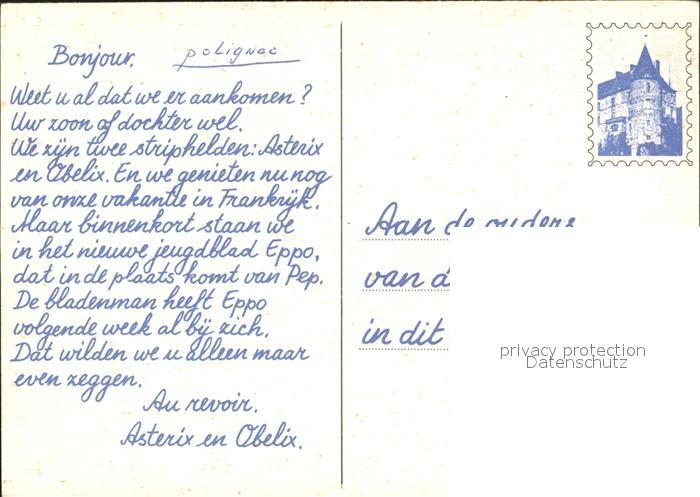 Bonjour. polignac
Weet u al dat we er aankomen?
Uw zoon of dochter wel.
We zijn twee striphelden: Asterix
en Obelix. En we genieten nu nog
van onze vakantie in Frankrijk.
Maar binnenkort staan we
in het nieuwe jeugdblad Eppo,
dat in de plaats komt van Pep.
De bladenman heeft Eppo
volgende week al bij zich.
Dat wilden we u alleen maar
even zeggen.
Au revoir.
Asterix en Obelix.
Aan de ouders
van
in dit
privacy protection
Datenschutz